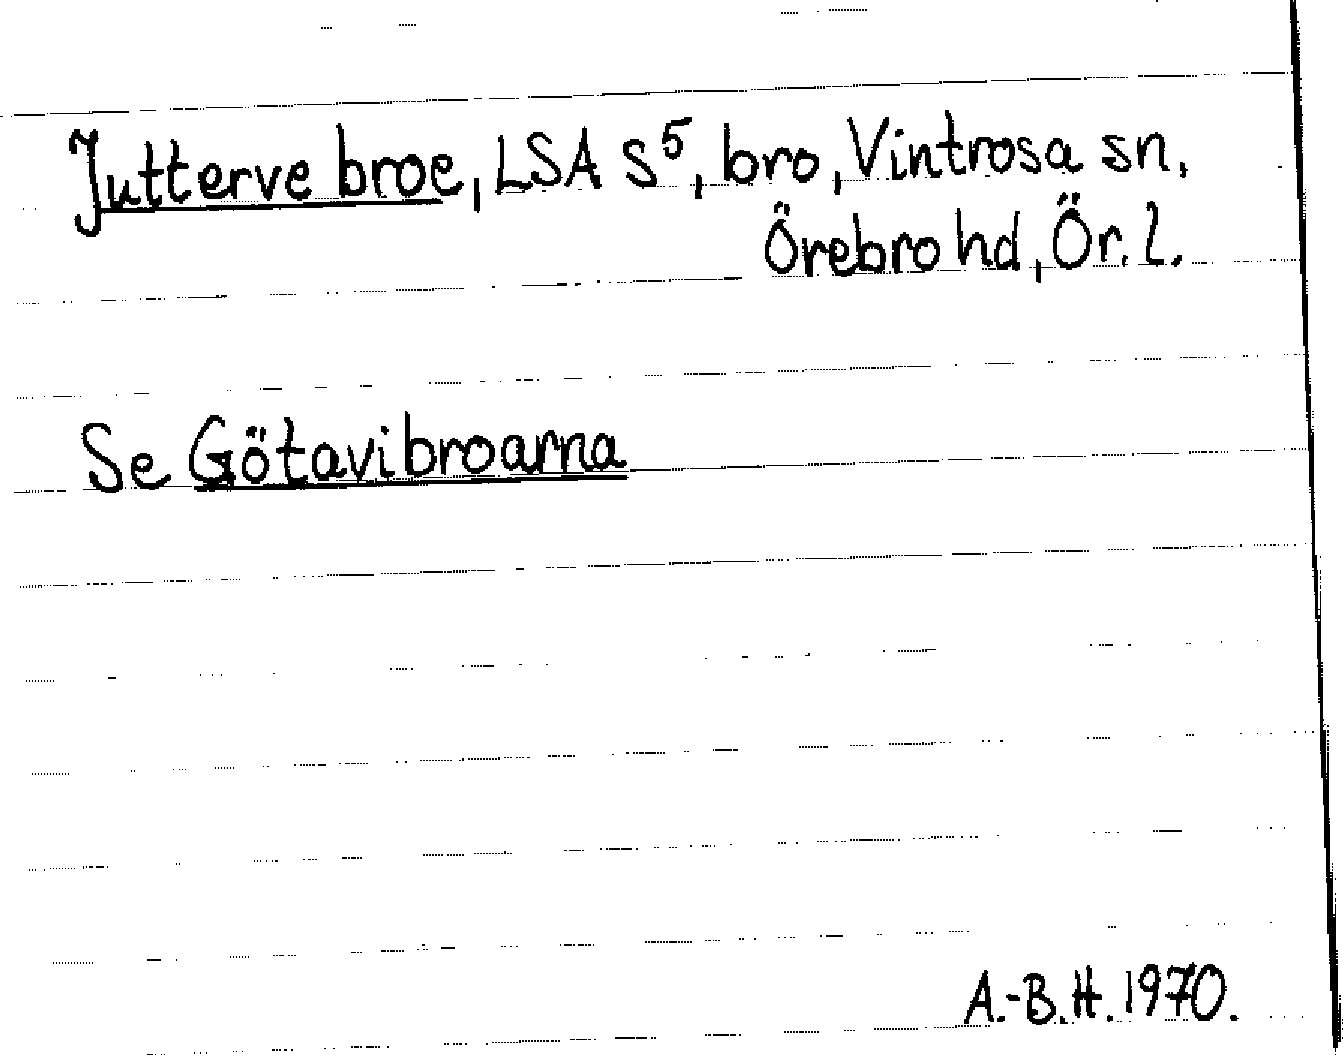 Jutterve broe, LSA S⁵, bro, Vintrosa sn.
Örebro hd, Ör. l.
Se Götavibroarna
A.-B.H. 1970.